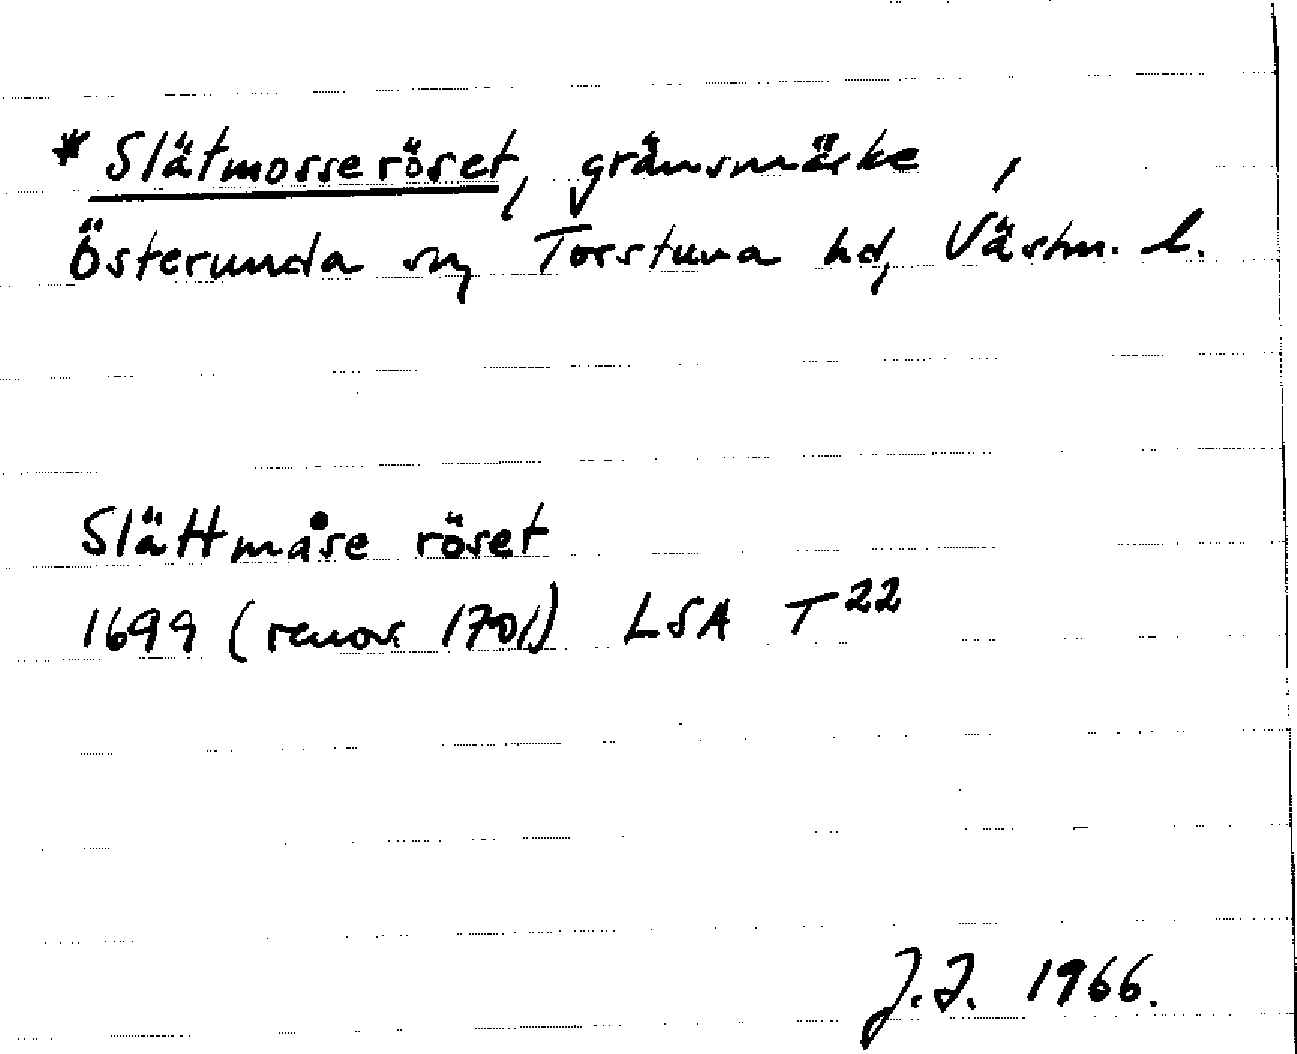 * Slätmosseröset, gränsmärke,
Österunda sn, Torstuna hd, Västm. l.
Slättmåse röset
1699 (renov 1701) LSA T 22
J.I. 1966.